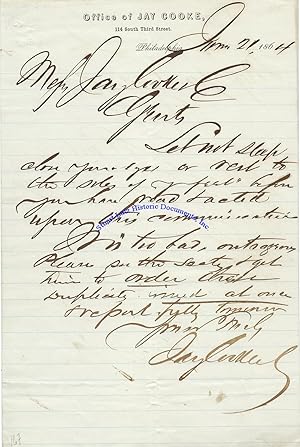 Office of JAY COOKE,
114 South Third Street.
Philadelphia, June 21, 1864
Messrs Jay Cooke & Co
Gents
Let not sleep
close your eyes or rest to
the soles of your feet when
you have read & acted
upon this communication
It is too bad, outrageous
Please see the Secty & get
him to order these
duplicates issued at once
& report fully tomorrow
yours truly
Jay Cooke